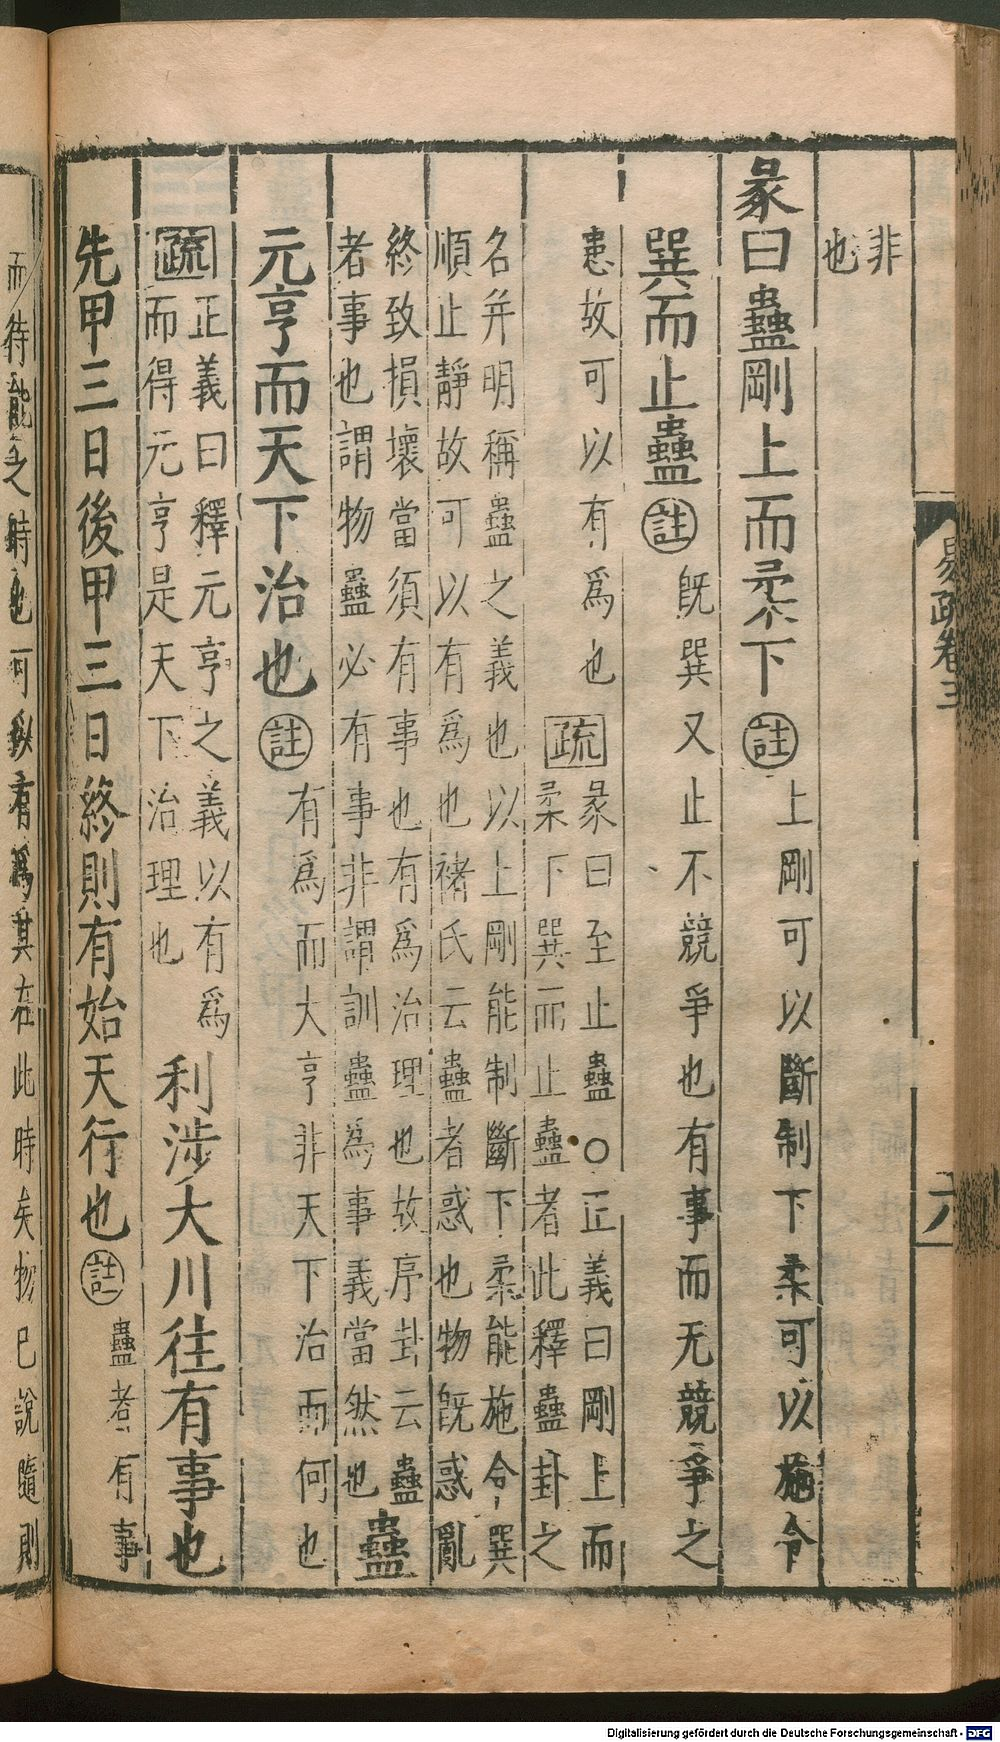 非
也
彖曰蠱剛上而柔下註上剛可以斷制下柔可以施令
巽而止蠱註既巽又止不競爭也有事而无競爭之
患故可以有爲也疏彖曰至止蠱○正義曰剛上而
柔下巽而止蠱者此釋蠱卦之
名并明稱蠱之義也以上剛能制斷下柔能施令巽
順止靜故可以有爲也褚氏云蠱者惑也物既惑亂
終致損壞當須有事也有爲治理也故序卦云蠱
者事也謂物蠱必有事非謂訓蠱爲事義當然也
蠱
元亨而天下治也註有爲而大亨非天下治而何也
疏正義曰釋元亨之義以有爲
而得元亨是天下治理也
利涉大川往有事也
先甲三日後甲三日終則有始天行也註蠱者有事
而待能之時也可以有爲其在此時矣物已說隨則
易疏卷三
六
Digitalisierung gefördert durch die Deutsche Forschungsgemeinschaft - DFG